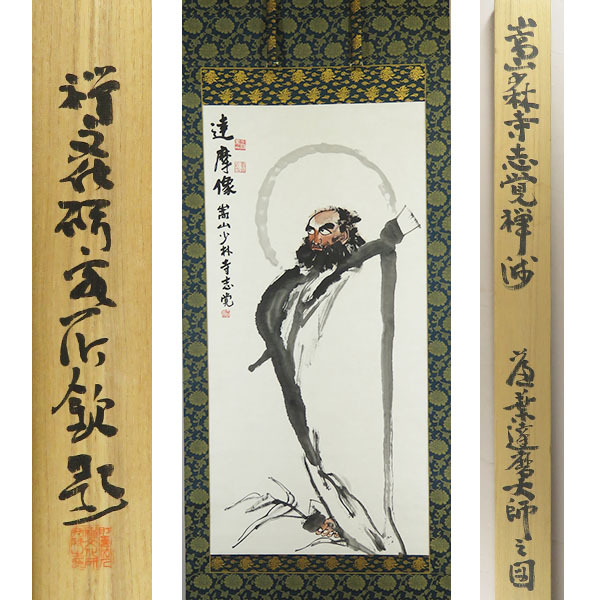 禅文化研究所欽題
達摩像
嵩山少林寺志覚
嵩山少林寺志覚禅師
芦葉達磨大師之図